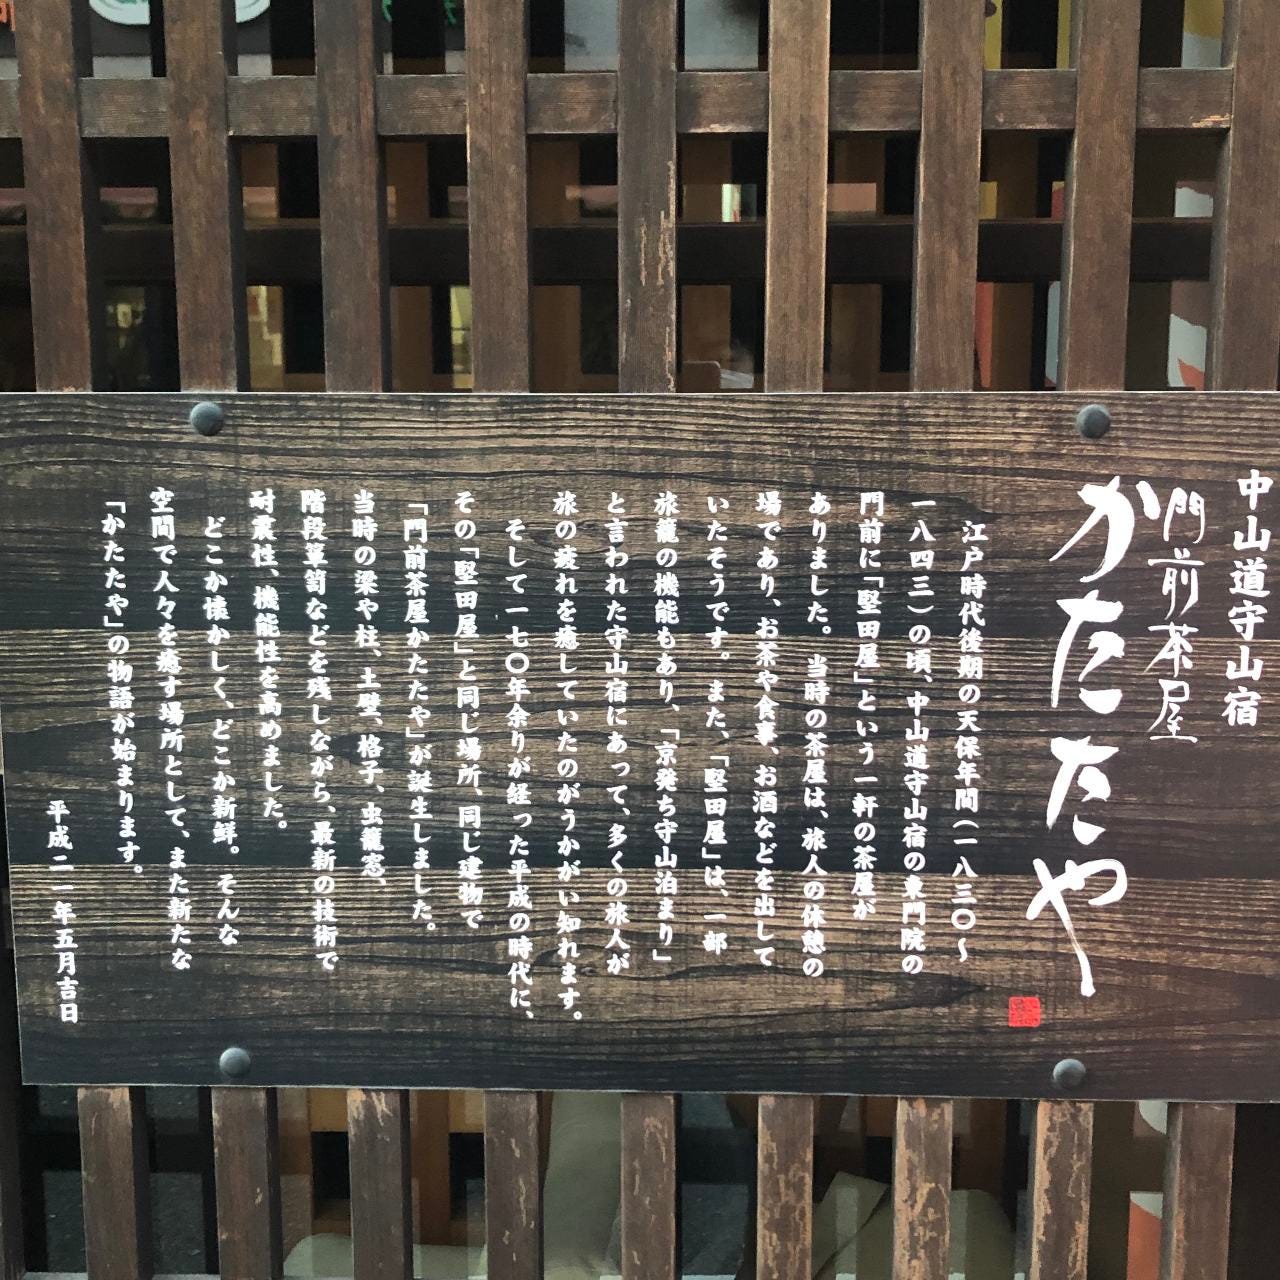 中山道守山宿
門前茶屋
かたたや
江戸時代後期の天保年間(一八三〇〜
一八四三)の頃、中山道守山宿の東門院の
門前に「堅田屋」という一軒の茶屋が
ありました。当時の茶屋は、旅人の休憩の
場であり、お茶や食事、お酒などを出して
いたそうです。また、「堅田屋」は、一部
旅籠の機能もあり、「京発ち守山泊まり」
と言われた守山宿にあって、多くの旅人が
旅の疲れを癒していたのがうかがい知れます。
そして一七〇年余りが経った平成の時代に、
その「堅田屋」と同じ場所、同じ建物で
「門前茶屋かたたや」が誕生しました。
当時の梁や柱、土壁、格子、虫籠窓、
階段箪笥などを残しながら、最新の技術で
耐震性、機能性を高めました。
どこか懐かしく、どこか新鮮。そんな
空間で人々を癒す場所として、また新たな
「かたたや」の物語が始まります。
平成二一年五月吉日